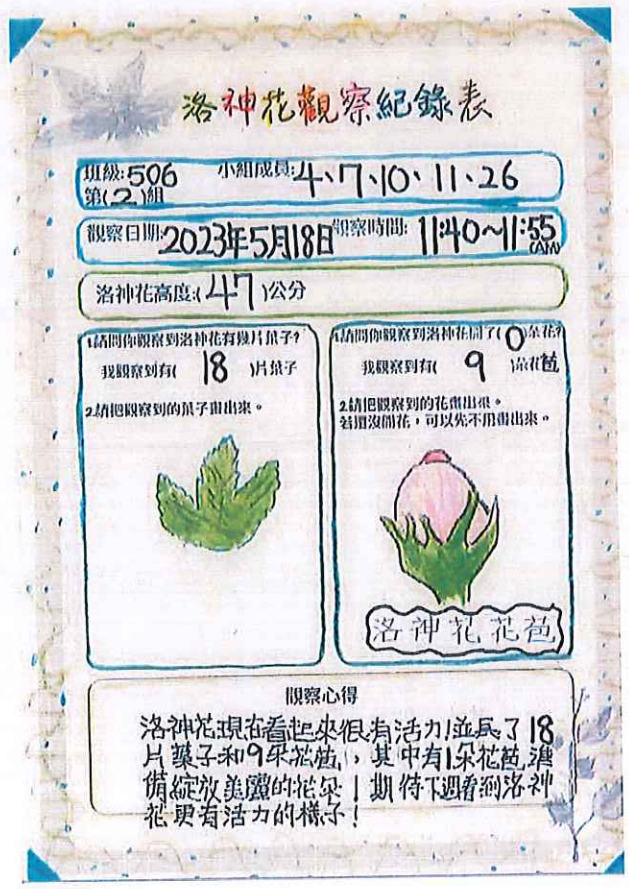 洛神花觀察紀錄表
班級:506 小組成員:4、7、10、11、26
第(2)組
觀察日期:2023年5月18日 觀察時間:11:40~11:55
(AM)
洛神花高度:(47)公分
1.請問你觀察到洛神花有幾片葉子?
我觀察到有( 18 )片葉子
2.請把觀察到的葉子畫出來。
1.請問你觀察到洛神花開了(0)朵花?
我觀察到有( 9 )朵花苞
2.請把觀察到的花畫出來。
若還沒開花,可以先不用畫出來。
洛神花花苞
觀察心得
洛神花現在看起來很有活力!並長了18
片葉子和9朵花苞,其中有1朵花苞準
備綻放美麗的花朵!期待下週看到洛神
花更有活力的樣子!